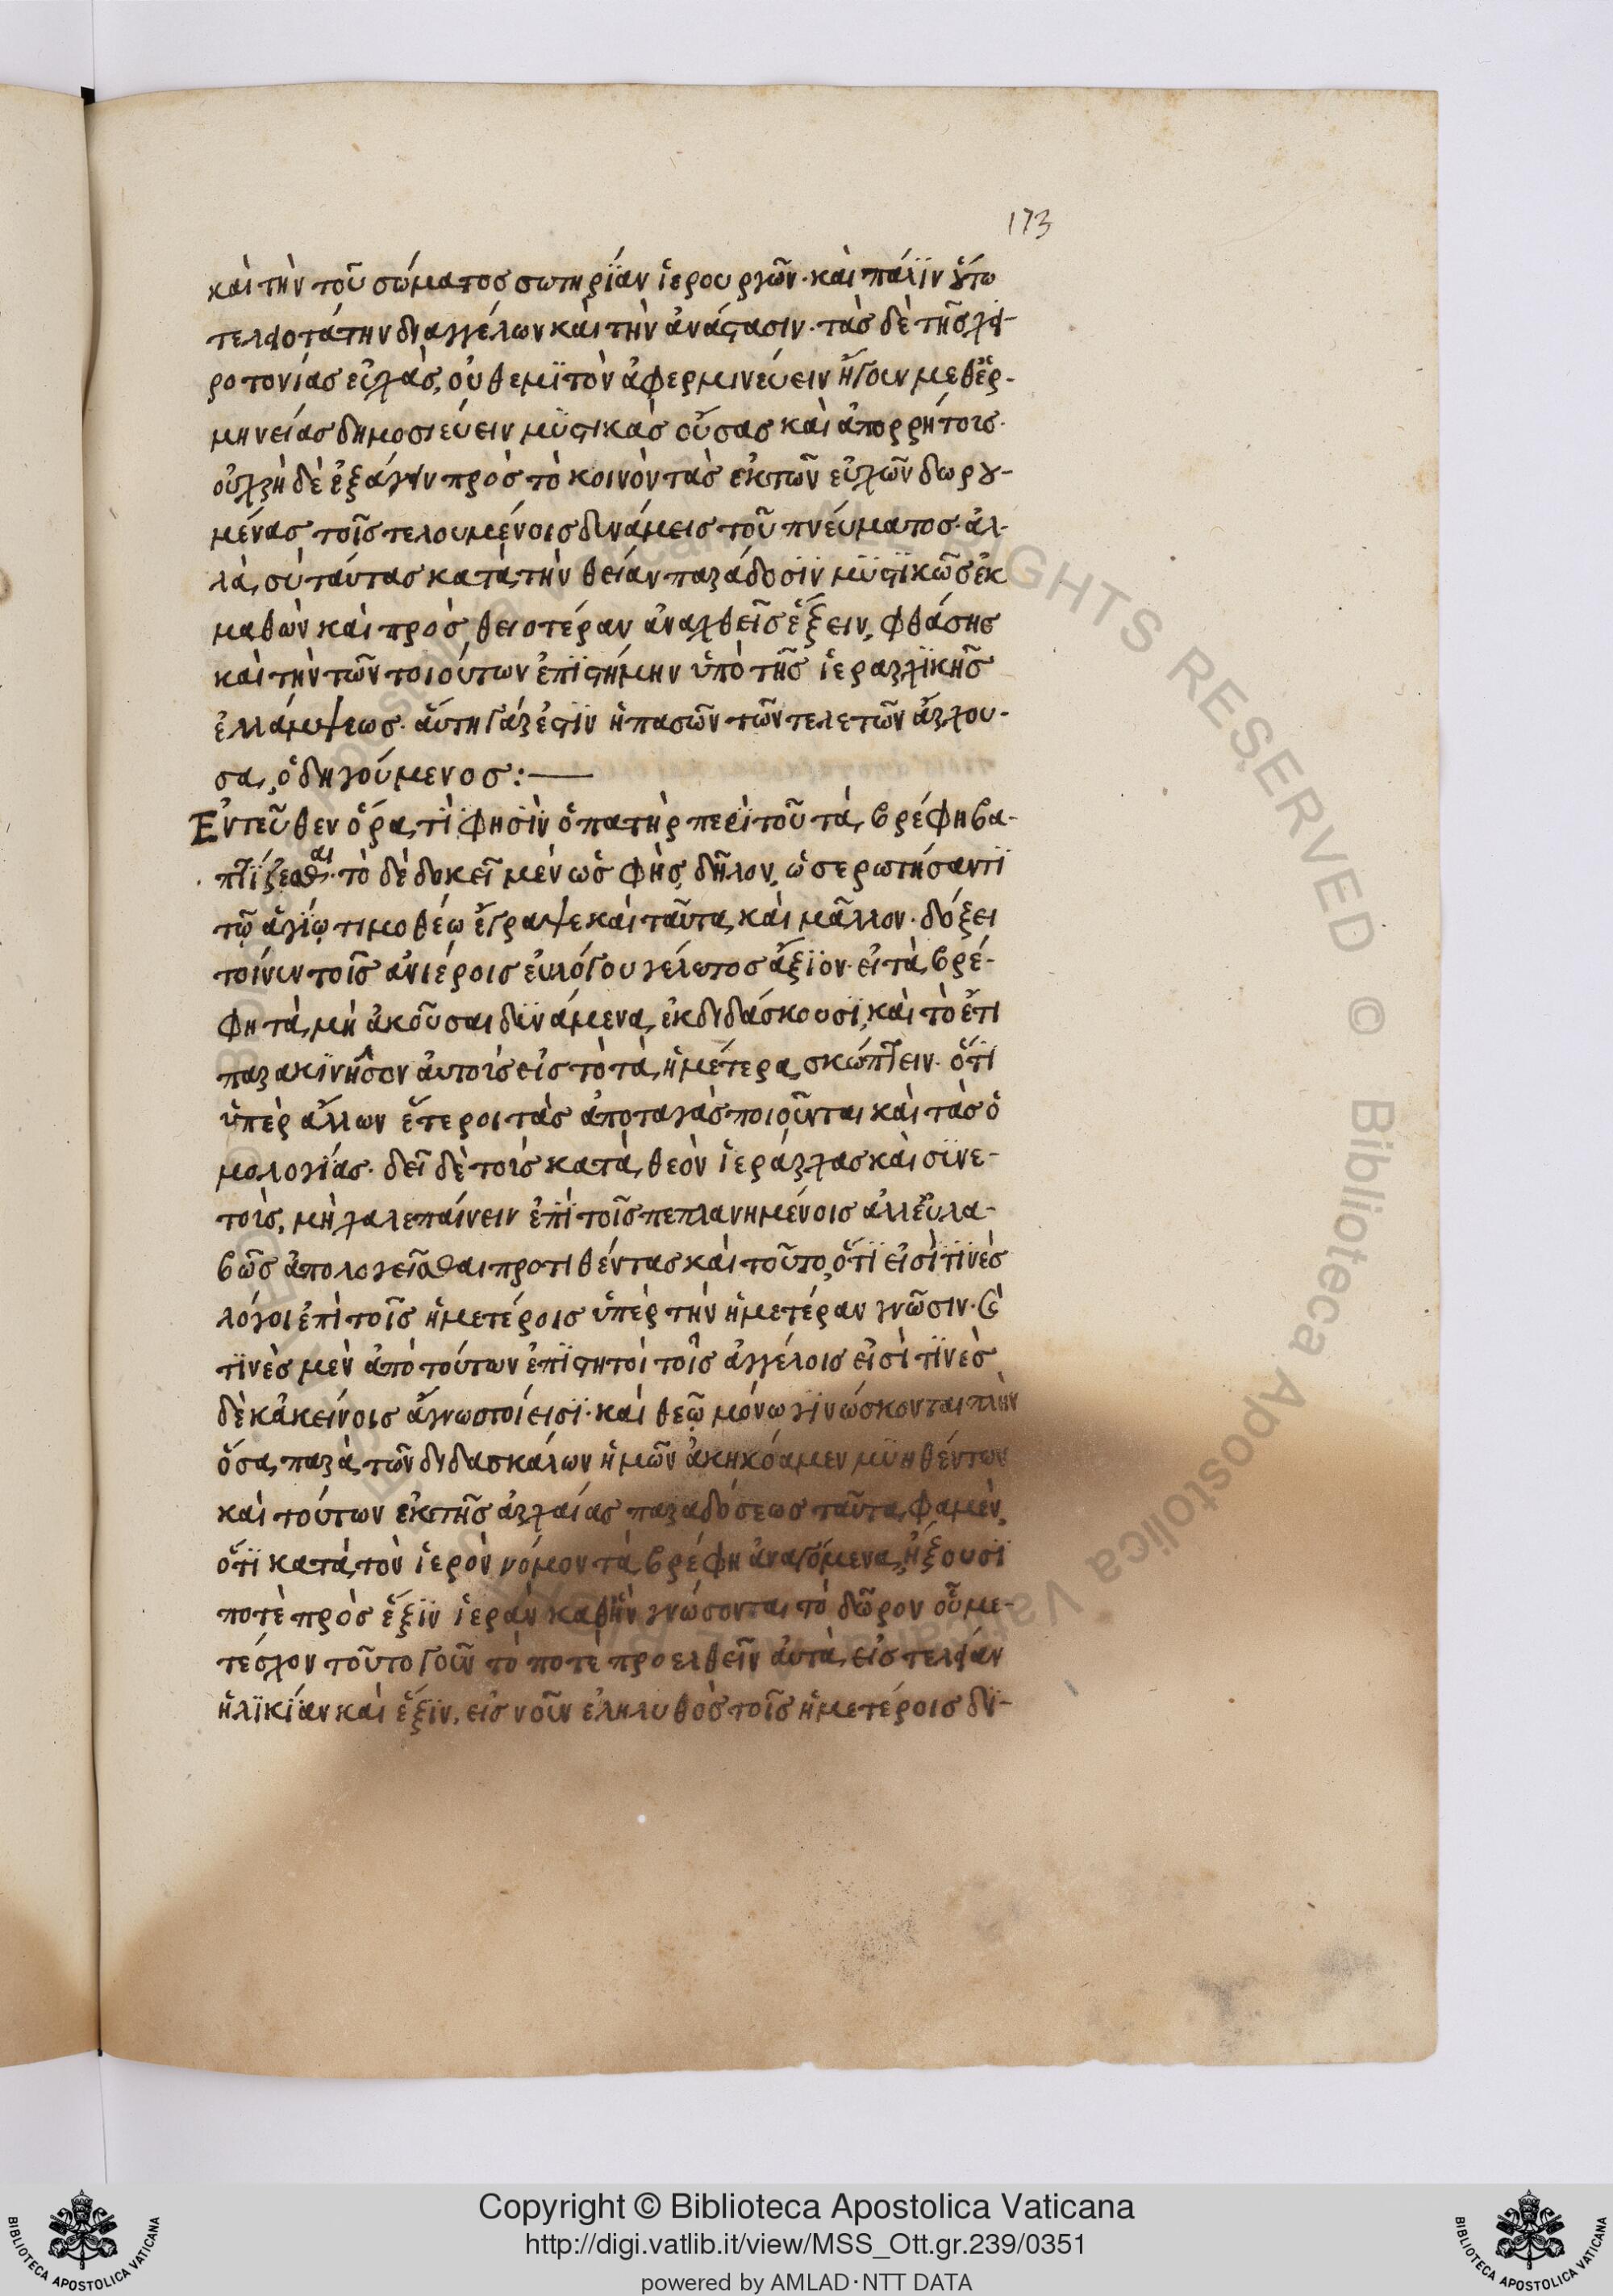 173
καὶ τὴν τοῦ σώματος σωτηρίαν ἱερουργῶν· καὶ πάλιν οὕτω
τελειοτάτην διαγγέλων καὶ τὴν ἀνάστασιν· τὰς δὲ τῆς χει-
ροτονίας εὐχὰς, οὐ θεμιτὸν ἀφερμινεύειν ἤγουν μεθ' ἑρ-
μηνείας δημοσιεύειν μϋστικὰς οὖσας καὶ ἀπορρήτοις·
οὐ χρὴ δὲ ἐξάγειν πρὸς τὸ κοινὸν τὰς ἐκ τῶν εὐχῶν δωρου-
μένας τοῖς τελουμένοις δυνάμεις τοῦ πνεύματος· ἀλ-
λὰ, σὺ ταύτας κατὰ τὴν θείαν παράδοσϊν μϋστϊκῶς ἐκ
μαθὼν καὶ πρὸς θειοτέραν ἀναχθεῖς ἕξειν, φθάσης
καὶ τὴν τῶν τοιούτων ἐπϊστήμην ὑπὸ τῆς ἱεραρχϊκῆς
ἐλλάμψεως· ἅυτη γάρ ἐστϊν ἡ πασῶν τῶν τελετῶν ἄρχου-
σα, ὁδηγούμενος:—
Ἐντεῦθεν ὅρα, τὶ φησὶν ὁ πατὴρ περὶ τοῦ τὰ βρέφη βα-
πτίζεσθαι· τὸ δὲ δοκεῖ μὲν ὡς φὴς, δῆλον, ὡς ερωτήσαντϊ
τῷ ἁγίῳ τιμοθέῳ ἔγραψε καὶ ταῦτα, καὶ μᾶλλον· δόξει
τοίνυν τοῖς ἀνιέροις ἐυλόγου γέλωτος ἄξϊον· εἰ τὰ βρέ-
φη τὰ, μὴ ἀκοῦσαι δϋνάμενα, ἐκδιδάσκουσϊ, καὶ τὸ ἔτι
παρακϊνῆσον ἀυτοὶς εἰς τὸ τὰ, ἡμέτερα, σκώπτειν· ὅτϊ
ὑπὲρ ἄλλων ἕτεροι τὰς ἀποταγὰς ποιοῦνται καὶ τὰς ὁ
μολογίας· δεῖ δὲ τοὶς κατὰ θεὸν ἱεράρχας καὶ σϋνε-
τοὶς, μὴ χαλεπαίνειν ἐπὶ τοῖς πεπλανημένοις ἀλλ' εὐλα-
βῶς ἀπολογεῖσθαι προτιθέντας καὶ τοῦτο, ὅτϊ εἰσὶ τϊνὲς
λόγοι ἐπὶ τοῖς ἡμετέροις ὑπὲρ τὴν ἡμετέραν γνῶσιν· καὶ
τϊνὲς μὲν ἀπὸ τούτων ἐπϊστητοὶ τοῖς ἀγγέλοις εἰσὶ τϊνὲς
δὲ κἀκείνοις ἄγνωστοί εισϊ· καὶ θεῷ μόνω γϊνώσκονται πλὴν
ὅσα, παρὰ, τῶν διδασκάλων ἡμῶν ἀκηκόαμεν μϋηθέντων
καὶ τούτων ἐκ τῆς ἀρχαίας παραδόσεως ταῦτα, φαμὲν,
ὅτϊ κατὰ, τὸν ἱερὸν νόμον τὰ, βρέφη ἀναγόμενα, ἥξουσϊ
ποτὲ πρὸς ἕξϊν ἱερὰν καθ' ἣν γνώσονται τὸ δῶρον οὗ με-
τέσχον τοῦτο γοῦν τὸ ποτὲ προελθεῖν ἀυτὰ, εἰς τελείαν
ἡλϊκίαν καὶ ἕξϊν, εἰς νοῦν ἐληλυθὸς τοῖς ἡμετέροις δι-
Copyright © Biblioteca Apostolica Vaticana
http://digi.vatlib.it/view/MSS_Ott.gr.239/0351
powered by AMLAD·NTT DATA
BIBLIOTECA APOSTOLICA VATICANA
BIBLIOTECA APOSTOLICA VATICANA